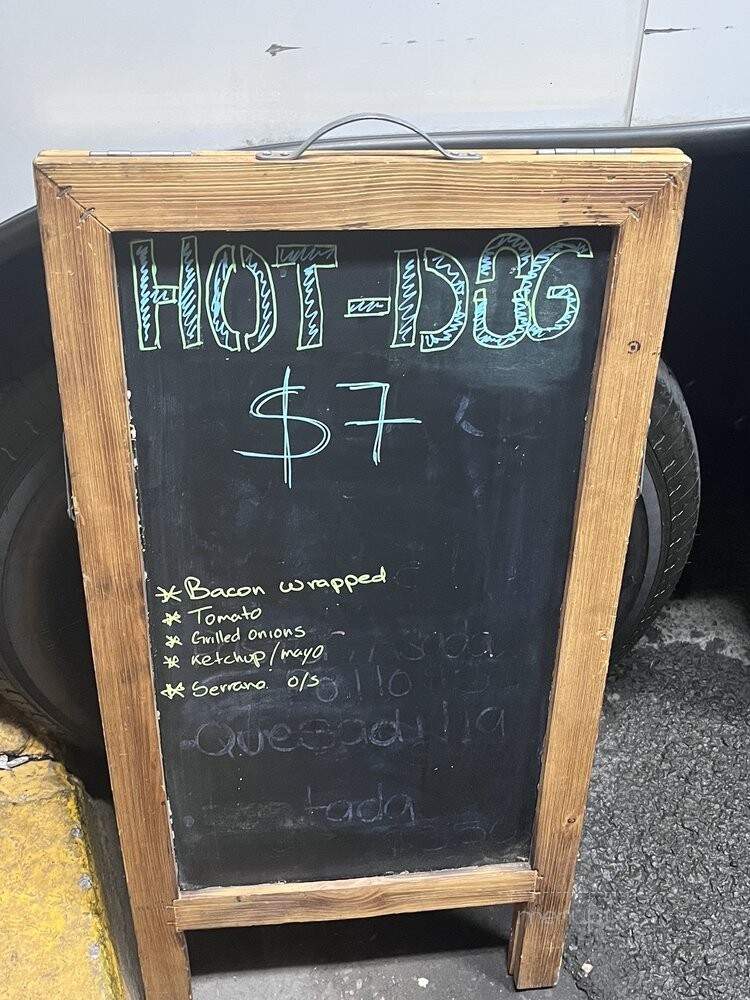 HOT-DOG
$7
* Bacon wrapped
* Tomato
* Grilled onions
* Ketchup/mayo
* Serrano o/s
Quesadilla